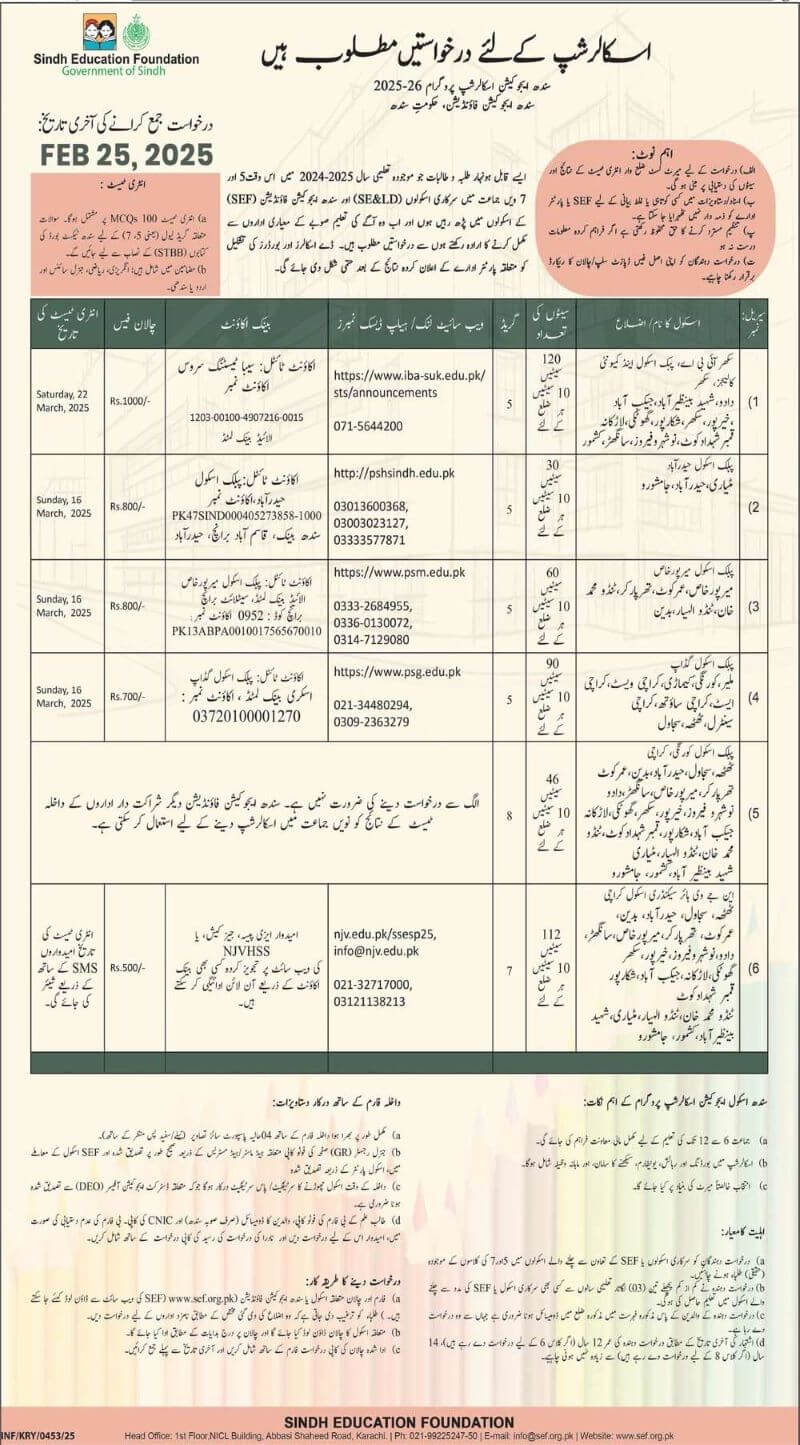 Sindh Education Foundation
Government of Sindh
اسکالرشپ کے لئے درخواستیں مطلوب ہیں
سندھ ایجوکیشن اسکالرشپ پروگرام 26-2025
سندھ ایجوکیشن فاؤنڈیشن، حکومتِ سندھ
درخواست جمع کرانے کی آخری تاریخ:
FEB 25, 2025
اہم نوٹ:
الف) درخواست کے لیے میرٹ لسٹ ضلع وار انٹری ٹیسٹ کے نتائج اور
سیٹوں کی دستیابی پر مبنی ہو گی۔
ب) اسناد/دستاویزات میں کسی کوتاہی یا غلط بیانی کے لیے SEF یا پارٹنر
ادارے کو ذمہ دار نہیں ٹھہرایا جا سکتا۔
پ) تنظیم مسترد کرنے کا حق محفوظ رکھتی ہے اگر فراہم کردہ معلومات
درست نہ ہو
ت) درخواست دہندگان کو اپنی اصل فیس ڈپازٹ سلپ/چالان کا ریکارڈ
برقرار رکھنا چاہیے۔
ایسے قابل ہونہار طلبہ و طالبات جو موجودہ تعلیمی سال 2025-2024 میں اس وقت 5 اور
7 ویں جماعت میں سرکاری اسکولوں (SE&LD) اور سندھ ایجوکیشن فاؤنڈیشن (SEF)
کے اسکولوں میں پڑھ رہیں ہوں اور اب وہ آگے کی تعلیم صوبے کے معیاری اداروں سے
مکمل کرنے کا ارادہ رکھتے ہوں سے درخواستیں مطلوب ہیں۔ ڈے اسکالرز اور بورڈرز کی تشکیل
کو متعلقہ پارٹنر ادارے کے اعلان کردہ نتائج کے بعد حتمی شکل دی جائے گی۔
انٹری ٹیسٹ:
a) انٹری ٹیسٹ 100 MCQs پر مشتمل ہوگا۔ سوالات
متعلقہ گریڈ لیول (یعنی 5، 7) کے لیے سندھ ٹیکسٹ بورڈ کی
کتابوں (STBB) کے نصاب سے لیے جائیں گے۔
b) مضامین میں شامل ہیں: انگریزی، ریاضی، جنرل سائنس اور
اردو یا سندھی۔
سیریل نمبر
اسکول کا نام / اضلاع
سیٹوں کی تعداد
گریڈ
ویب سائیٹ لنک/ ہیلپ ڈیسک نمبرز
بینک اکاؤنٹ
چالان فیس
انٹری ٹیسٹ کی تاریخ
1)
سکھر آئی بی اے، پبلک اسکول اینڈ کمیونٹی
کالیجز، سکھر
دادو، شہید بینظیر آباد، جیکب آباد
، خیرپور، سکھر، شکارپور، گھوٹکی، لاڑکانہ
قمبر شہدادکوٹ، نوشہروفیروز، سانگھڑ، کشمور
120
سیٹیں
10 سیٹیں
ہر ضلع
کے لئے
5
https://www.iba-suk.edu.pk/
sts/announcements
071-5644200
اکاؤنٹ ٹائٹل: سیبا ٹیسٹنگ سروس
اکاؤنٹ نمبر
1203-00100-4907216-0015
الائیڈ بینک لمٹڈ
Rs.1000/-
Saturday, 22
March, 2025
2)
پبلک اسکول حیدرآباد
مٹیاری، حیدرآباد، جامشورو
30
سیٹیں
10 سیٹیں
ہر ضلع
کے لئے
5
http://pshsindh.edu.pk
03013600368,
03003023127,
03333577871
اکاؤنٹ ٹائٹل: پبلک اسکول
حیدرآباد، اکاؤنٹ نمبر
PK47SIND000405273858-1000
سندھ بینک، قاسم آباد برانچ، حیدرآباد
Rs.800/-
Sunday, 16
March, 2025
3)
پبلک اسکول میرپورخاص
میرپورخاص، عمرکوٹ، تھرپارکر، ٹنڈو محمد
خان، ٹنڈو الہیار، بدین
60
سیٹیں
10 سیٹیں
ہر ضلع
کے لئے
5
https://www.psm.edu.pk
0333-2684955,
0336-0130072,
0314-7129080
اکاؤنٹ ٹائٹل: پبلک اسکول میرپورخاص
الائیڈ بینک لمٹڈ، سیٹلائٹ برانچ
برانچ کوڈ: 0952 اکاؤنٹ نمبر:
PK13ABPA0010017565670010
Rs.800/-
Sunday, 16
March, 2025
4)
پبلک اسکول گڈاپ
ملیر، کورنگی، کیماڑی، کراچی ویسٹ، کراچی
ایسٹ، کراچی ساؤتھ، کراچی
سینٹرل، ٹھٹھہ، سجاول
90
سیٹیں
10 سیٹیں
ہر ضلع
کے لئے
5
https://www.psg.edu.pk
021-34480294,
0309-2363279
اکاؤنٹ ٹائٹل: پبلک اسکول گڈاپ
اسکری بینک لمٹڈ، اکاؤنٹ نمبر:
03720100001270
Rs.700/-
Sunday, 16
March, 2025
5)
پبلک اسکول کورنگی، کراچی
ٹھٹھہ، سجاول، حیدرآباد، بدین، عمرکوٹ
تھرپارکر، میرپورخاص، سانگھڑ، دادو
نوشہروفیروز، خیرپور، سکھر، گھوٹکی، لاڑکانہ
جیکب آباد، شکارپور، قمبر شہدادکوٹ، ٹنڈو
محمد خان، ٹنڈو الہیار، مٹیاری
شہید بینظیرآباد، کشمور، جامشورو
46
سیٹیں
10 سیٹیں
ہر ضلع
کے لئے
8
الگ سے درخواست دینے کی ضرورت نہیں ہے۔ سندھ ایجوکیشن فاؤنڈیشن دیگر شراکت دار اداروں کے داخلہ
ٹیسٹ کے نتائج کو نویں جماعت میں اسکالرشپ دینے کے لیے استعمال کر سکتی ہے۔
6)
این جے وی ہائر سیکنڈری اسکول کراچی
ٹھٹھہ، سجاول، حیدرآباد، بدین،
عمرکوٹ، تھرپارکر، میرپورخاص، سانگھڑ،
دادو، نوشہروفیروز، خیرپور، سکھر
گھوٹکی، لاڑکانہ، جیکب آباد، شکارپور
قمبر شہدادکوٹ
ٹنڈو محمد خان، ٹنڈو الہیار، مٹیاری، شہید
بینظیرآباد، کشمور، جامشورو
112
سیٹیں
10 سیٹیں
ہر ضلع
کے لئے
7
njv.edu.pk/ssesp25,
info@njv.edu.pk
021-32717000,
03121138213
امیدوار ایزی پیسہ، جیز کیش، یا
NJVHSS
کی ویب سائٹ پر تجویز کردہ کسی بھی بینک
اکاؤنٹ کے ذریعے آن لائن ادائیگی کر سکتے
ہیں۔
Rs.500/-
انٹری ٹیسٹ کی
تاریخ امیدواروں
کے ساتھ SMS
کے ذریعے شیئر
کی جائے گی۔
سندھ اسکول ایجوکیشن اسکالرشپ پروگرام کے اہم نکات:
a) جماعت 6 سے 12 تک کی تعلیم کے لیے مکمل مالی معاونت فراہم کی جائے گی۔
b) اسکالرشپ میں بورڈنگ اور رہائش، یونیفارم، سیکھنے کا سامان، اور ماہانہ وظیفہ شامل ہوگا۔
c) انتخاب خالصتاً میرٹ کی بنیاد پر کیا جائے گا۔
اہلیت کا معیار:
a) درخواست دہندگان کو سرکاری اسکولوں یا SEF کے تعاون سے چلنے والے اسکولوں میں 5 اور 7 کی کلاسوں کے موجودہ
(حقیقی) طلباء ہونے چاہئیں۔
b) درخواست دہندہ نے کم از کم پچھلے تین (03) لگاتار تعلیمی سالوں سے کسی بھی سرکاری اسکول یا SEF کی مدد سے چلنے
والے اسکول میں تعلیم حاصل کی ہو گی۔
c) درخواست دہندہ کے والدین کے پاس مذکورہ فہرست میں مذکورہ ضلع میں ڈومیسائل ہونا ضروری ہے جہاں سے وہ درخواست
دے رہا ہے۔
d) اشتہار کی آخری تاریخ کے مطابق درخواست دہندہ کی عمر 12 سال (اگر کلاس 6 کے لیے درخواست دے رہے ہیں)، 14
سال (اگر کلاس 8 کے لیے درخواست دے رہے ہیں) سے زیادہ نہیں ہونی چاہیے۔
داخلہ فارم کے ساتھ درکار دستاویزات:
a) مکمل طور پر بھرا ہوا داخلہ فارم کے ساتھ 04 حالیہ پاسپورٹ سائز تصاویر (نیلے/سفید پس منظر کے ساتھ)۔
b) جنرل رجسٹر (GR) صفحہ کی فوٹو کاپی متعلقہ ہیڈ ماسٹر/ہیڈ مسٹریس کے ذریعہ صحیح طور پر تصدیق شدہ اور SEF اسکول کے معاملے
میں، اسکول پارٹنر کے ذریعہ تصدیق شدہ
c) داخلہ کے وقت اسکول چھوڑنے کا سرٹیفکیٹ/پاس سرٹیفکیٹ درکار ہوگا جو کہ متعلقہ ڈسٹرکٹ ایجوکیشن آفیسر (DEO) سے تصدیق شدہ
ہونا ضروری ہے۔
d) طالب علم کے بی فارم کی فوٹو کاپی، والدین کا ڈومیسائل (صرف صوبہ سندھ) اور CNIC کی کاپی۔ بی فارم کی عدم دستیابی کی صورت
میں، امیدوار اس کے لیے درخواست دیں اور نادرا کی درخواست کی رسید کی کاپی درخواست کے ساتھ شامل کریں۔
درخواست دینے کا طریقہ کار:
a) فارم اور چالان متعلقہ اسکول یا سندھ ایجوکیشن فاؤنڈیشن (www.sef.org.pk) (SEF کی ویب سائٹ سے ڈاؤن لوڈ کئے جا سکتے
ہیں۔) طلباء کو ترغیب دی جاتی ہے کہ وہ اضلاع کی دی گئی مختص کے مطابق نامزد اداروں کے لیے درخواست دیں۔
b) متعلقہ اسکول کا چالان ڈاؤن لوڈ کیا جائے گا اور چالان پر درج ہدایات کے مطابق ادا کیا جائے گا۔
c) ادا شدہ چالان کی کاپی درخواست فارم کے ساتھ شامل کریں اور آخری تاریخ سے پہلے جمع کرائیں۔
SINDH EDUCATION FOUNDATION
INF/KRY/0453/25
Head Office: 1st Floor,NICL Building, Abbasi Shaheed Road, Karachi. | Ph: 021-99225247-50 | E-mail: info@sef.org.pk | Website: www.sef.org.pk